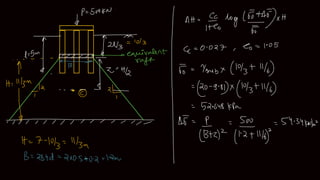 P=500kN
2D/3 = 10/3
equivalent
raft
Z = H/2
H = 7-10/3 = 11/3m
B = 2s+d = 2x0.5+0.2 = 1.2m
ΔH = Cc/(1+e₀) log (σ̄₀+Δσ̄/σ̄₀) × H
Cc = 0.027, e₀ = 1.05
σ̄₀ = γsub × (10/3 + 11/6)
= (20-9.81) × (10/3 + 11/6)
= 52.648 kPa
Δσ̄ = P/(B+Z)² = 500/(1.2 + 11/6)² = 54.34 kN/m²